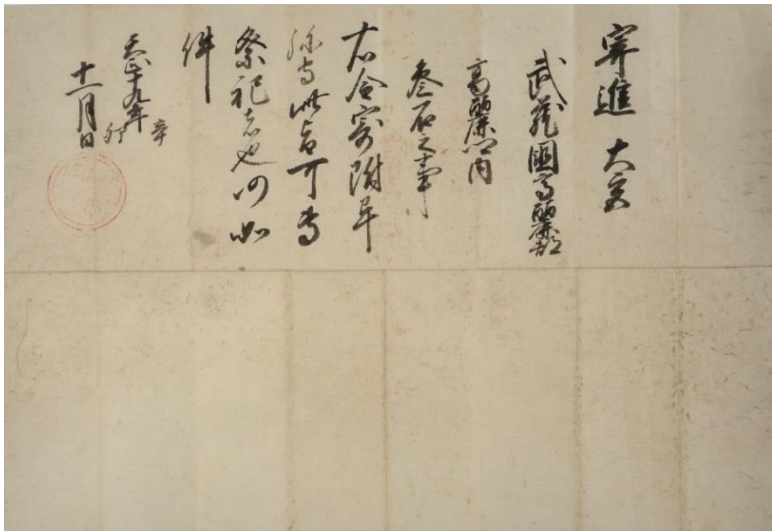 寄進 大宮
武蔵國高麗郡
高麗郷内
参石之事
右令寄附畢
弥守此旨可専
祭祀者也仍如
件
天正十九年辛卯
十一月日